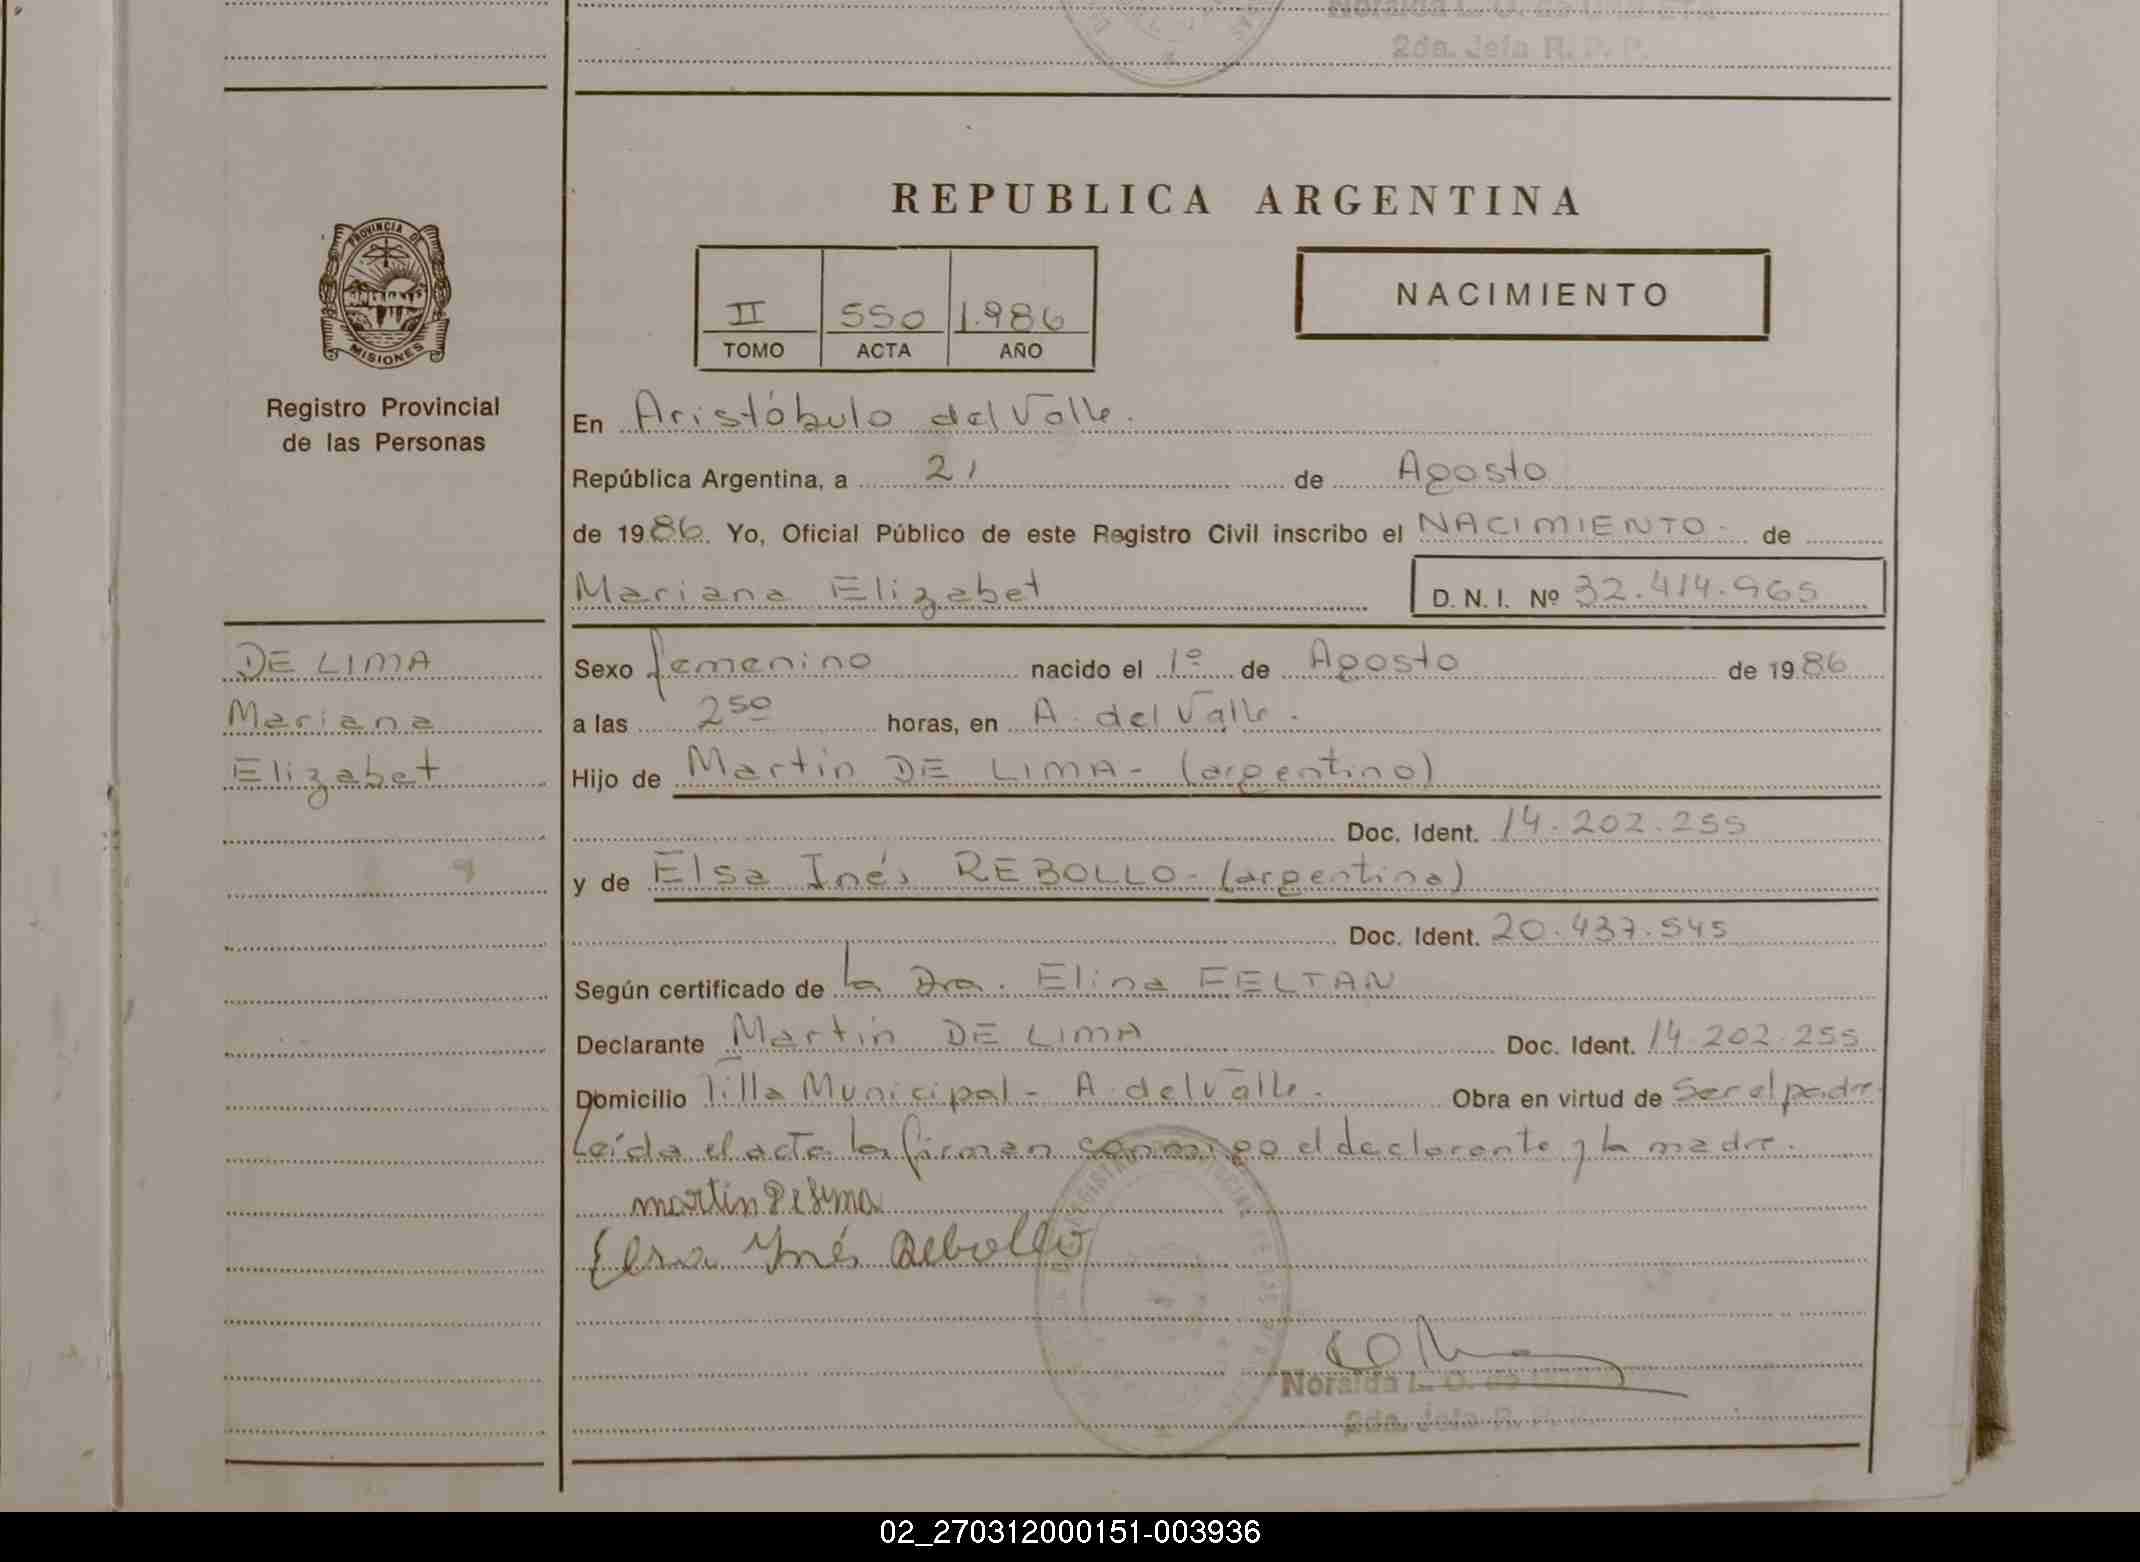 2da. Jefa R. P. P.
REPUBLICA ARGENTINA
PROVINCIA DE
MISIONES
II 550 1.986
TOMO ACTA AÑO
NACIMIENTO
Registro Provincial
de las Personas
En Aristóbulo del Valle.
República Argentina, a 21 de Agosto
de 1986. Yo, Oficial Público de este Registro Civil inscribo el NACIMIENTO- de
Mariana Elizabet D. N. I. Nº 32.414.965
DE LIMA
Mariana
Elizabet
Sexo femenino nacido el 1º de Agosto de 1986
a las 2 50 horas, en A. del Valle.
Hijo de Martín DE LIMA- (argentino)
Doc. Ident. 14.202.255
y de Elsa Inés REBOLLO- (argentina)
Doc. Ident. 20.437.545
Según certificado de la Dra. Elina FELTAN
Declarante Martín DE LIMA Doc. Ident. 14.202.255
Domicilio Villa Municipal - A. del Valle. Obra en virtud de Ser el padre
Leída el acta la firman conmigo el declarante y la madre.
martin De Lima
Elsa Ynés Rebollo
Noralda L. O. de
2da. Jefa R. P. P.
02_270312000151-003936